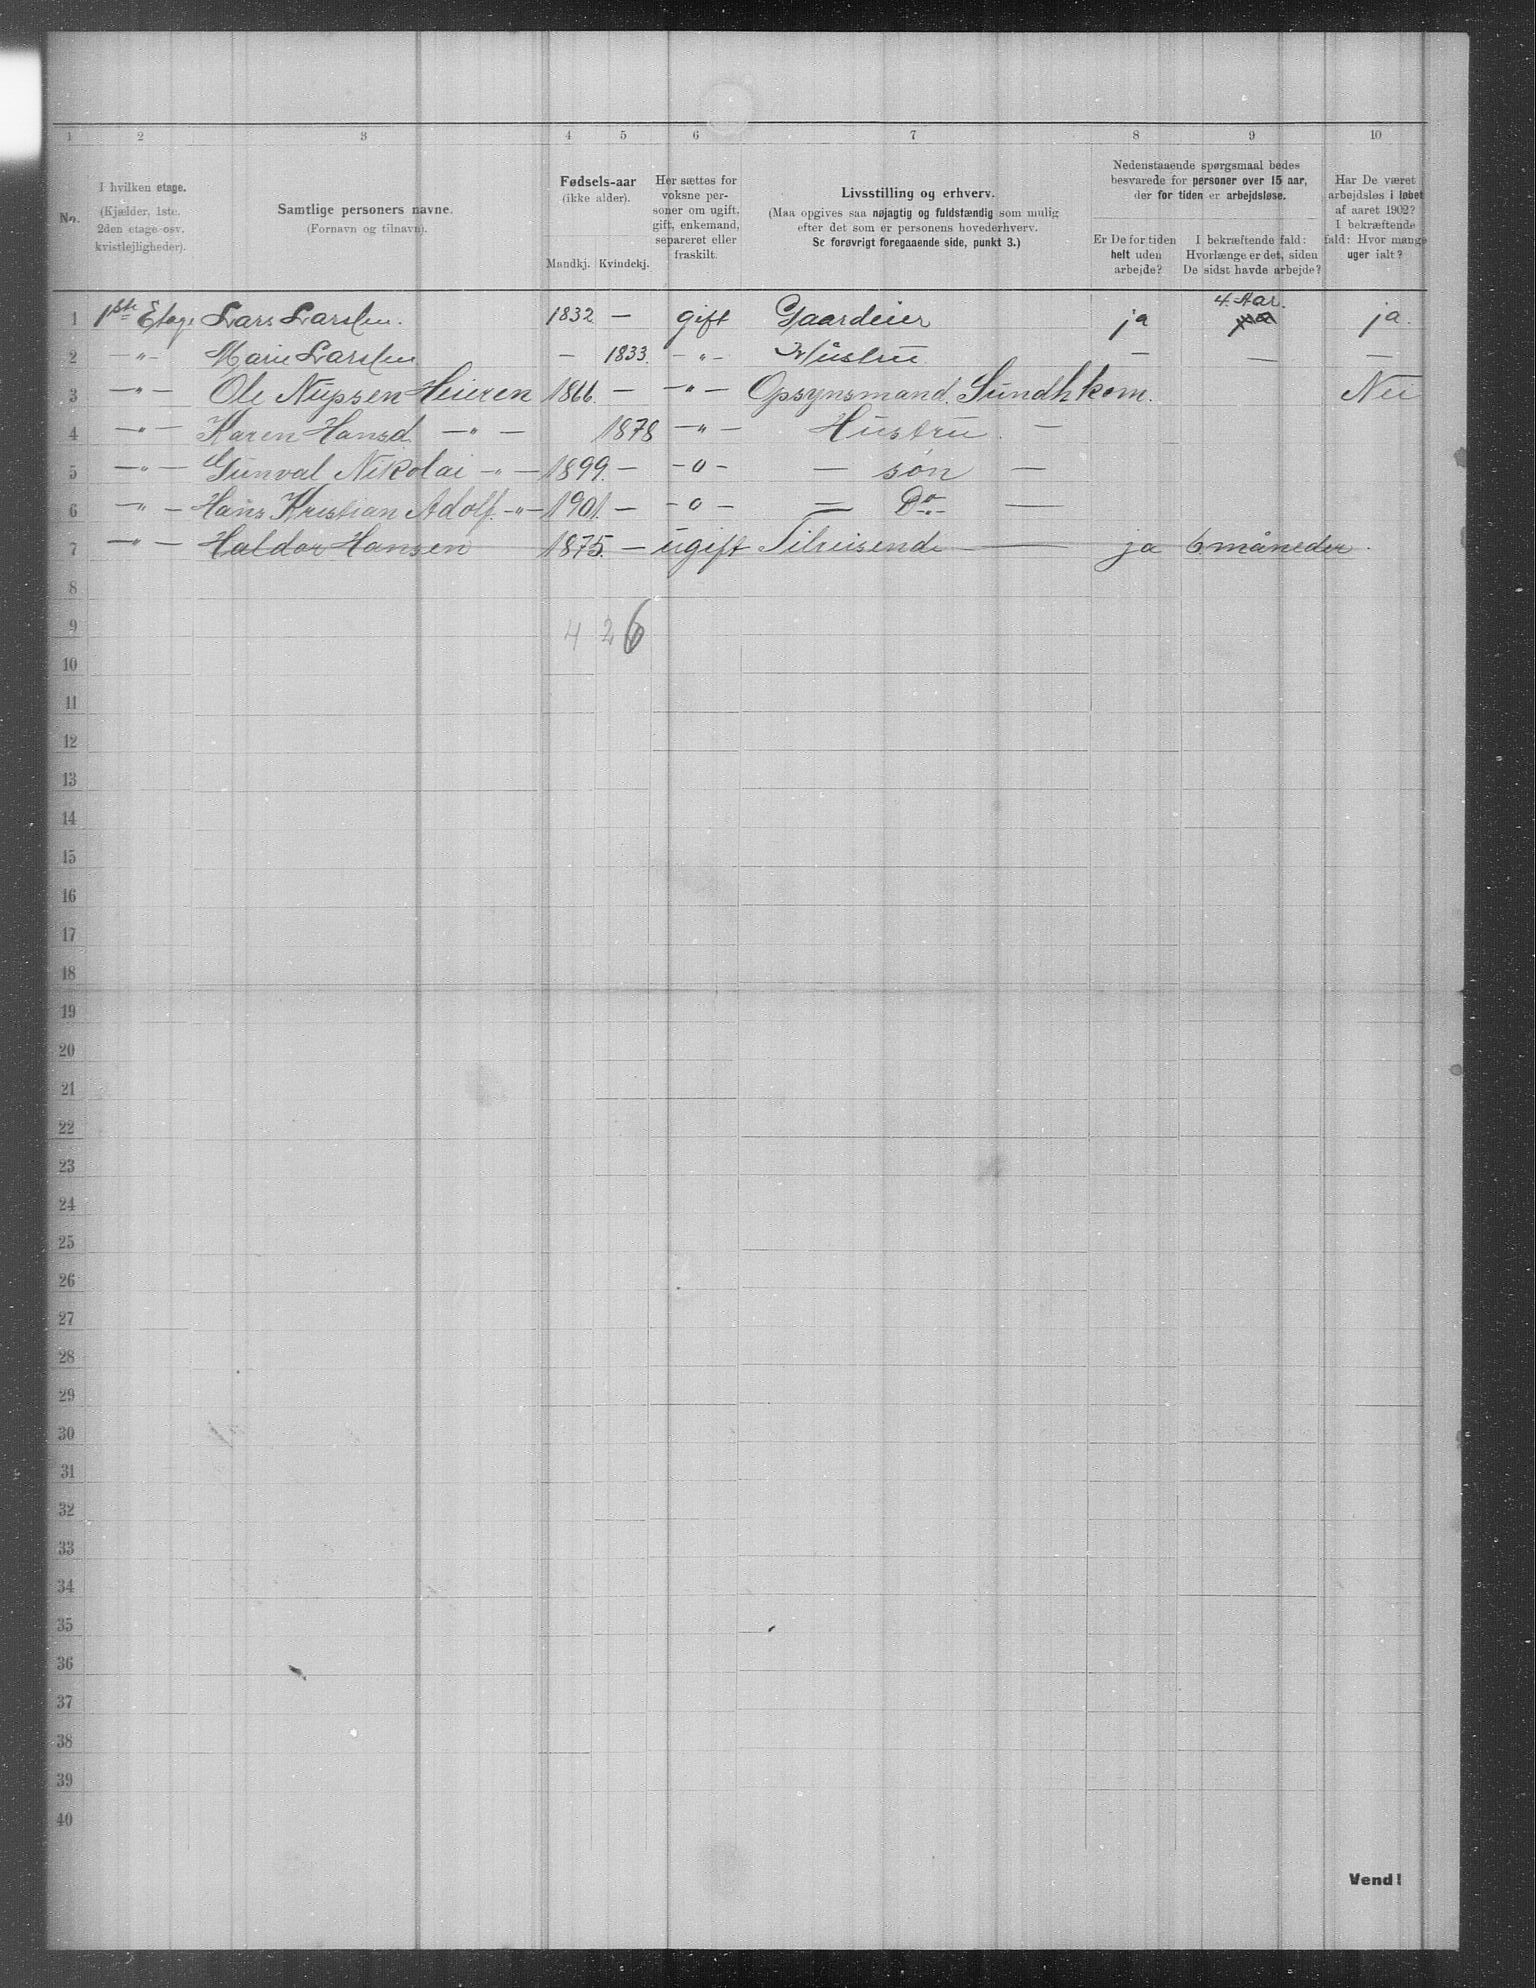 1 2 3 4 5 6 7 8 9 10
No.
I hvilken etage.
(Kjælder, 1ste.
2den etage osv.
kvistlejligheder).
Samtlige personers navne.
(Fornavn og tilnavn).
Fødsels-aar
(ikke alder).
Mandkj. Kvindekj.
Her sættes for
voksne per-
soner om ugift,
gift, enkemand,
separeret eller
fraskilt.
Livsstilling og erhverv.
(Maa opgives saa nøjagtig og fuldstændig som mulig
efter det som er personens hovederhverv.
Se forøvrigt foregaaende side, punkt 3.)
Nedenstaaende spørgsmaal bedes
besvarede for personer over 15 aar,
der for tiden er arbejdsløse.
Er De for tiden
helt uden
arbejde?
I bekræftende fald:
Hvorlænge er det, siden
De sidst havde arbejde?
Har De været
arbejdsløs i løbet
af aaret 1902?
I bekræftende
fald: Hvor mange
uger ialt?
1 1ste Etage Lars Larsen. 1832 — gift Gaardeier ja 4 Aar. ja.
2 —"— Marie Larsen — 1833. —"— Hustru — — —
3 —"— Ole Nupsen Heieren 1866. — —"— Opsynsmand. Sundh kom. Nei
4 —"— Karen Hansd —"— 1878 —"— Hustru. —
5 —"— Gunval Nikolai —"— 1899. — —o— — søn —
6 —"— Hans Kristian Adolf. —"— 1901. — —o— — Do —
7 —"— Haldor Hansen 1875. — ugift Tilreisende — ja 6 måneder.
8
9 4 2 6
10
11
12
13
14
15
16
17
18
19
20
21
22
23
24
25
26
27
28
29
30
31
32
33
34
35
36
37
38
39
40
Vend!